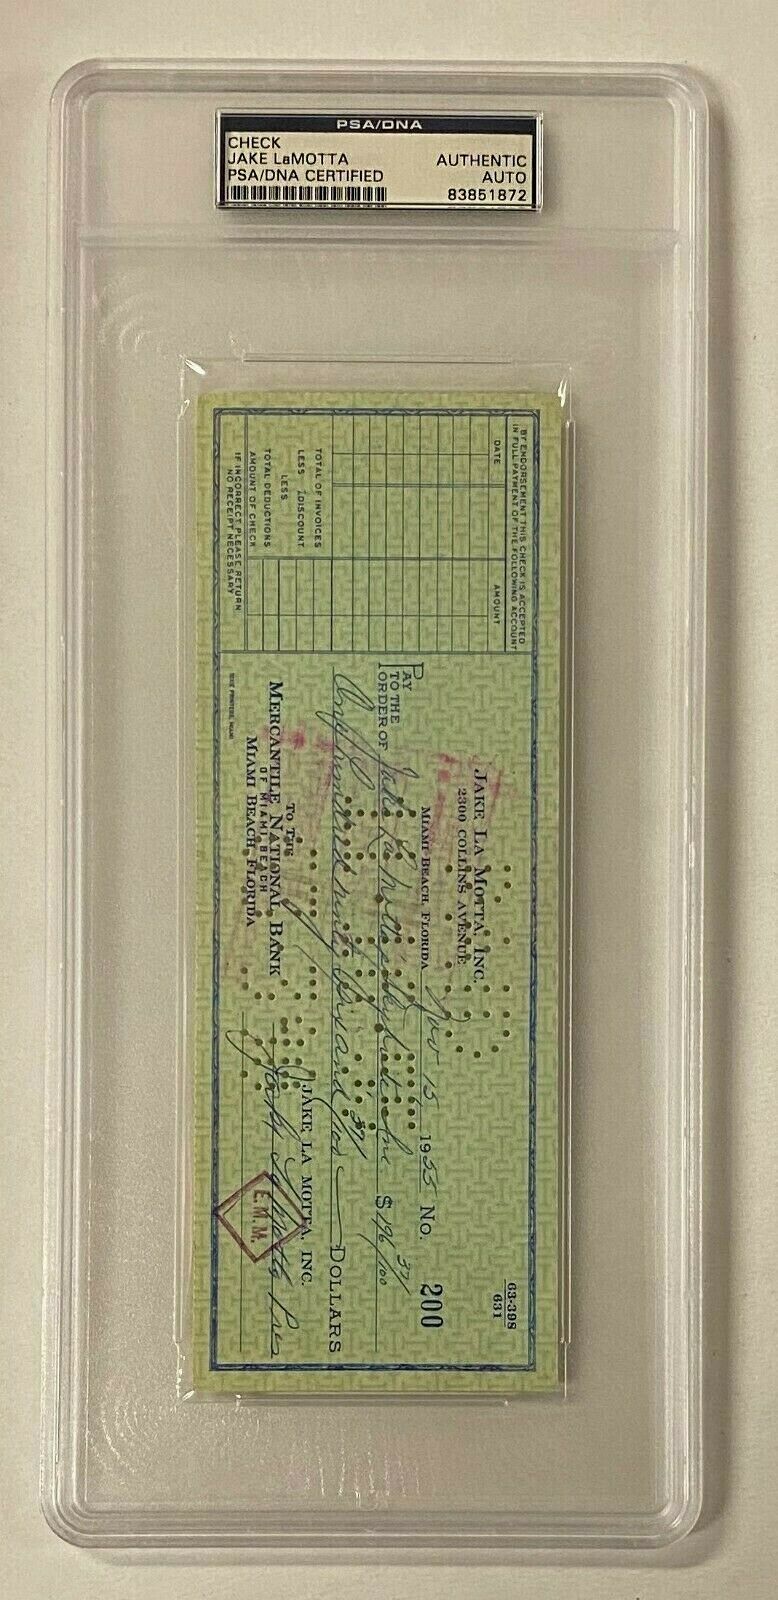 PSA/DNA
CHECK
JAKE LaMOTTA AUTHENTIC
PSA/DNA CERTIFIED AUTO
83851872
BY ENDORSEMENT THIS CHECK IS ACCEPTED
IN FULL PAYMENT OF THE FOLLOWING ACCOUNT
DATE AMOUNT
TOTAL OF INVOICES
LESS % DISCOUNT
LESS
TOTAL DEDUCTIONS
AMOUNT OF CHECK
IF INCORRECT PLEASE RETURN
NO RECEIPT NECESSARY
63-398
631
JAKE LA MOTTA, INC.
2300 COLLINS AVENUE
MIAMI BEACH, FLORIDA Nov 15 1955 No. 200
PAY
TO THE
ORDER OF Jake La Motta $196 37/100
One hundred ninty six and 37/100 DOLLARS
TO THE
MERCANTILE NATIONAL BANK
OF MIAMI BEACH
MIAMI BEACH, FLORIDA
JAKE LA MOTTA, INC.
Jake La Motta Pres
E.M.M.